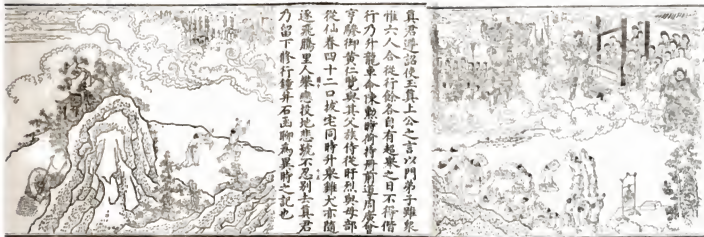 真君遵詔使玉真上公之言以門弟子雖衆
惟六人合從行餘各自有超舉之日不得偕
行乃升龍車命陳勲時荷持冊前道周廣曾
亨驂御黃仁覽與其父族侍從盱烈與母部
從仙眷四十二口拔宅同時升舉雞犬亦隨
逐飛騰里人攀戀投地悲號不忍別去真君
乃留下修行鐘并石函聊為異時之記也